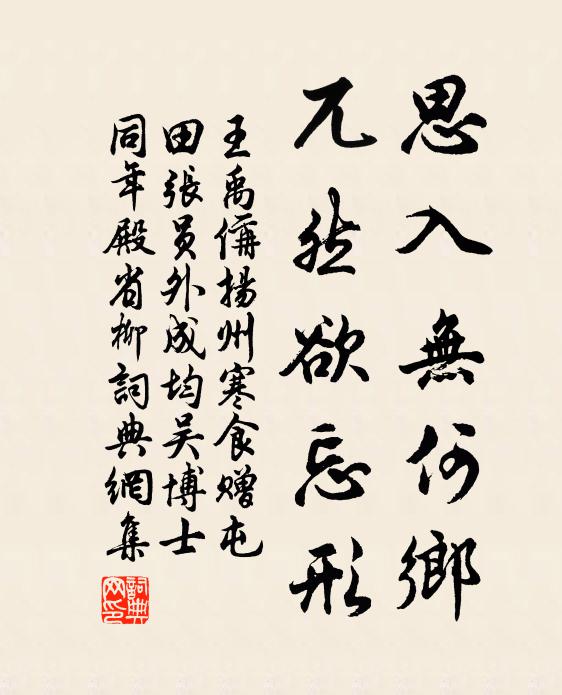 思入無何鄉
兀然欲忘形
王禹偁揚州寒食贈屯
田張員外成均吴博士
同年殿省柳詞典網集
詞典
网印